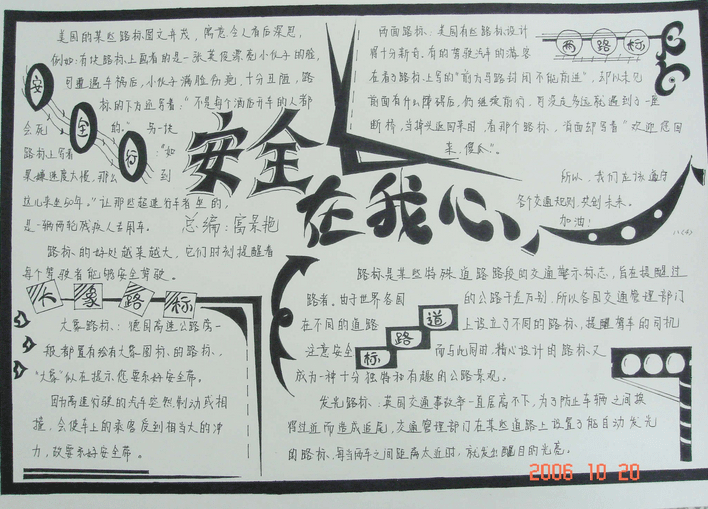 美国的某些路标图文并茂，寓意令人看后深思，
例如：有块路标上画着的是一张英俊漂亮小伙子的脸，
可遭遇车祸后，小伙子满脸伤疤，十分丑陋，路
标的下方还写着：“不是每个酒后开车的人都
会死的。”另一块
路标上写着：“如
果嫌速度太慢，那么到
这儿来走50年。”让那些超速行手看的，
是一辆两轮残疾人专用车。
路标的好处越来越大，它们时刻提醒着
每个驾驶者能够安全驾驶。
安全行
安全
在我心
总编：高景艳
两面路标：美国有些路标设计
得十分新奇，有的驾驶汽车的游客
在看了路标上写的“前方马路封闭不能前进”，却从未见
前面有什么障碍后，仍继续前行，可没走多远就遇到了一座
断桥，当掉头返回来时，看那个路标，背面却写着“欢迎您回
来，傻瓜”。
两路标
所以，我们应该遵守
各个交通规则，共创未来。
加油！
八(4)
大象路标
大象路标：德国高速公路旁一
般都置有绘有大象图标的路标，
“大象”似在提示您要系好安全带。
因为高速行驶的汽车突然制动或相
撞，会使车上的乘客受到相当大的冲
力，故要系好安全带。
道路标
路标是某些特殊道路路段的交通警示标志，旨在提醒过
路者。由于世界各国的公路千差万别，所以各国交通管理部门
在不同的道路上设立了不同的路标，提醒驾车的司机
注意安全，而与此同时，精心设计的路标又
成为一种十分独特和有趣的公路景观。
发光路标：英国交通事故率一直居高不下，为了防止车辆之间挨
得过近而造成追尾，交通管理部门在某些道路上设置了能自动发光
的路标，每当两车之间距离太近时，就发出醒目的光亮。
2006 10 20